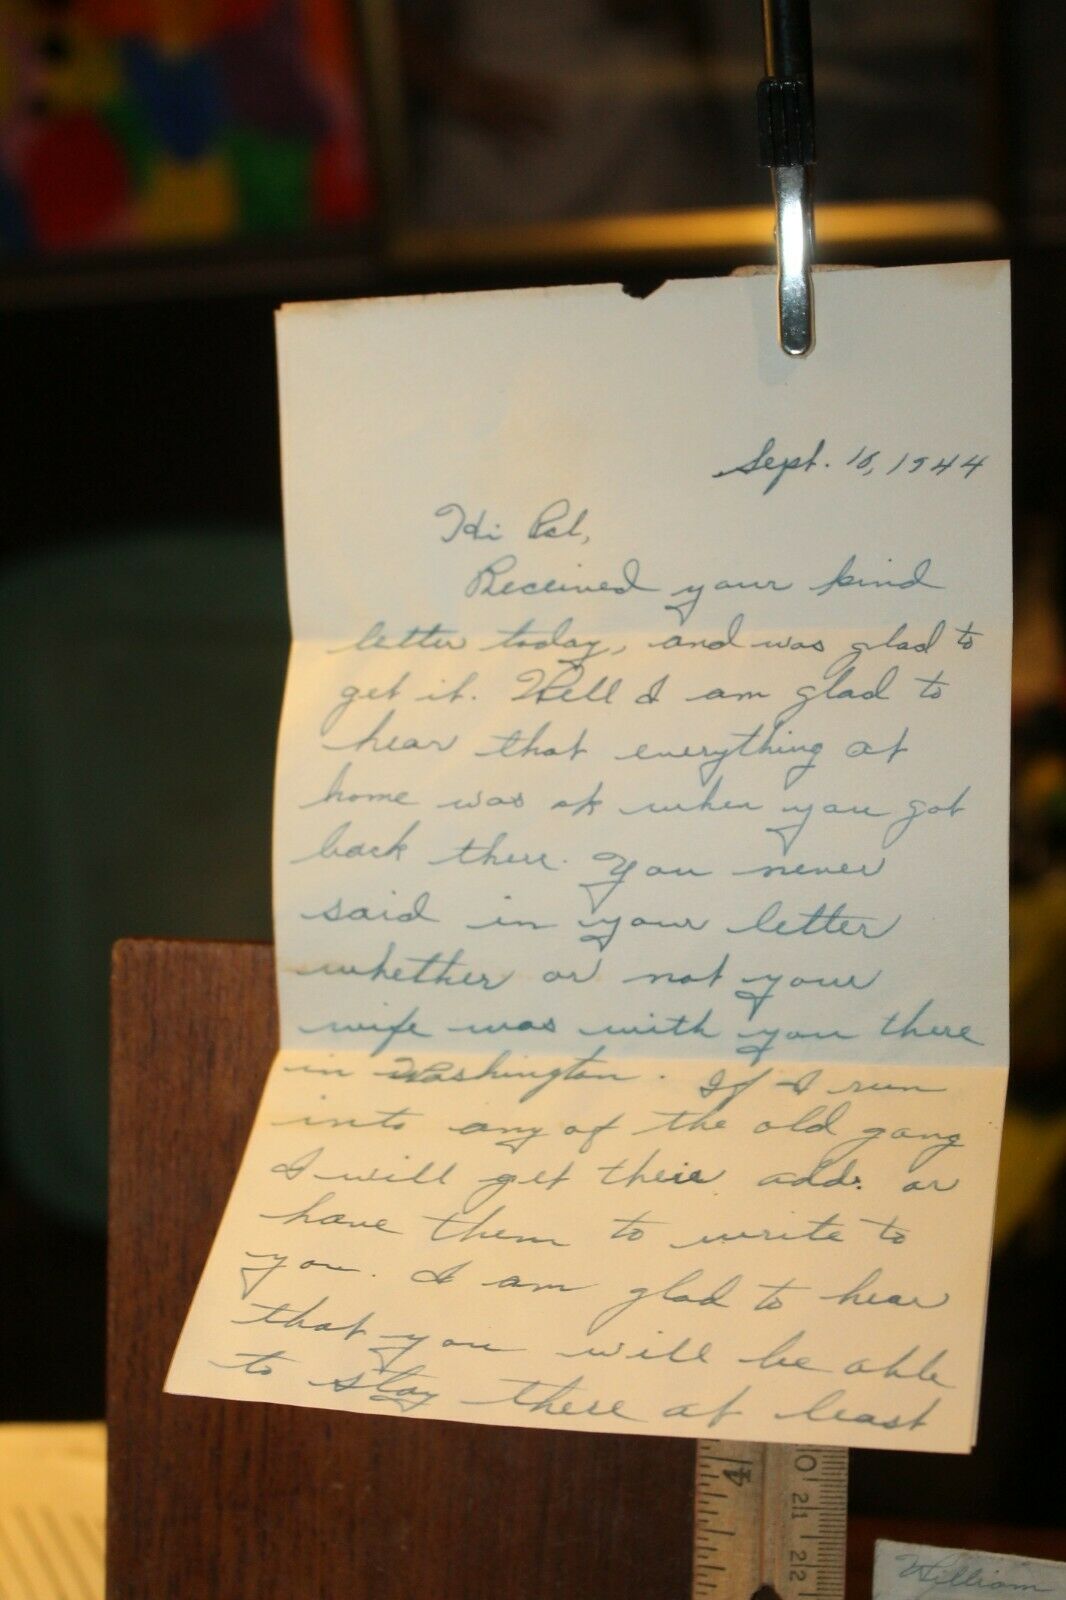 Sept. 10, 1944
Hi Pal,
Received your kind
letter today, and was glad to
get it. Well I am glad to
hear that everything at
home was ok when you got
back there. You never
said in your letter
whether or not your
wife was with you there
in Washington. If I run
into any of the old gang
I will get their add. or
have them to write to
you. I am glad to hear
that you will be able
to stay there at least
4
0
21
22
William